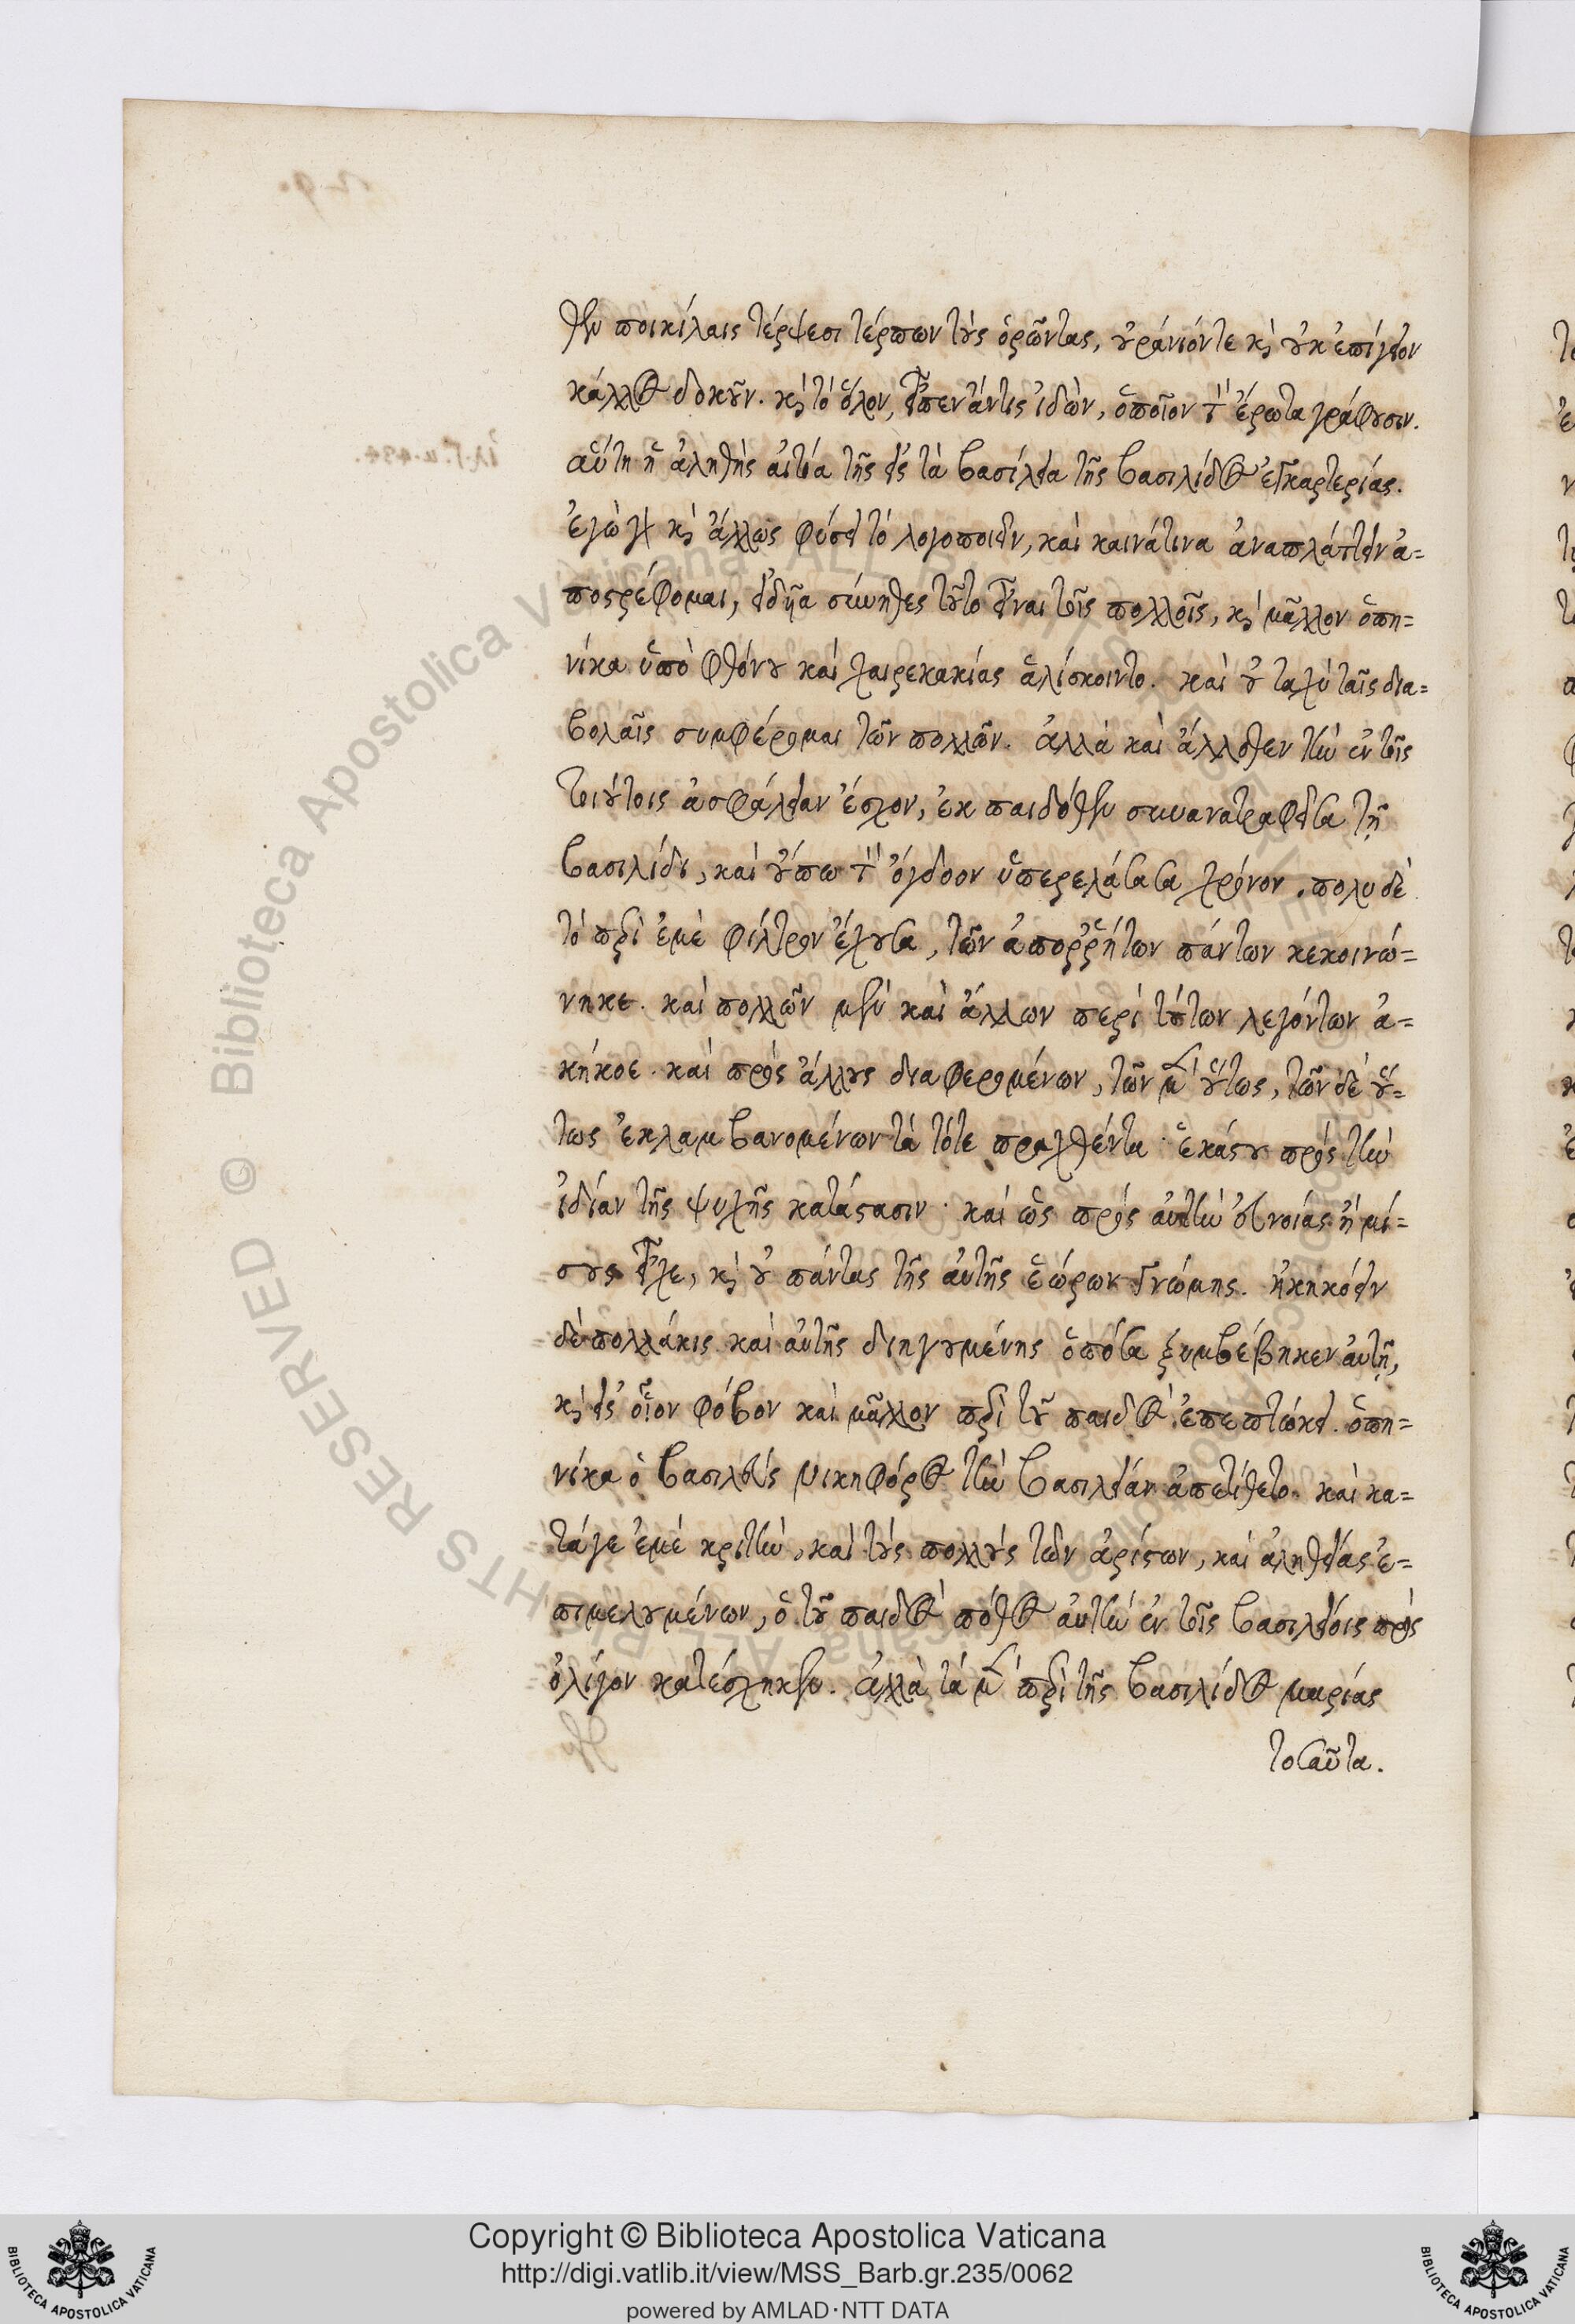 θεν ποικίλαις τέρψεσι τέρπων τοὺς ὁρῶντας, οὐράνιόν τε κ οὐκ ἐπίγειον
κάλλος δοκοῦν. κ τὸ ὅλον, εἶπεν ἄν τις ἰδὼν, ὁποῖον τ ἔρωτα γράφουσιν.
αὕτη ἡ ἀληθὴς αἰτία τῆς εἰς τὰ βασίλεια τῆς βασιλίδος ἐγκαρτερίας.
ἐγὼ γὰρ κ ἄλλως φύσει τὸ λογοποιεῖν, καὶ καινά τινα ἀναπλάττειν ἀ=
ποστρέφομαι, εἰδῆα σύνηθες τοῦτο εἶναι τοῖς πολλοῖς, κ μᾶλλον ὁπη=
νίκα ὑπὸ φθόνου καὶ χαιρεκακίας ἁλίσκοιντο. καὶ οὐ ταχὺ ταῖς δια=
βολαῖς συμφέρομαι τῶν πολλῶν. ἀλλὰ καὶ ἄλλοθεν τὴν ἐν τοῖς
τοιούτοις ἀσφάλειαν ἔσχον, ἐκ παιδόθεν συναναστραφεῖσα τῇ
βασιλίδι, καὶ οὔπω τ ὄγδοον ὑπερελάσασα χρόνον. πολὺ δὲ
τὸ περὶ ἐμὲ φίλτρον ἔχουσα, τῶν ἀπορῥήτων πάντων κεκοινώ=
νηκε. καὶ πολλῶν μὲν καὶ ἄλλων περὶ τούτων λεγόντων ἀ=
κήκοε. καὶ πρὸς ἄλλους διαφερομένων, τῶν μ οὕτως, τῶν δὲ οὕ=
τως ἐκλαμβανομένων τὰ τότε πραχθέντα· ἑκάστου πρὸς τὴν
ἰδίαν τῆς ψυχῆς κατάστασιν· καὶ ὡς πρὸς αὐτὴν εὐνοίας ἢ μί=
σους εἶχε, κ οὐ πάντας τῆς αὐτῆς ἑώρων γνώμης. ἠκηκόειν
δὲ πολλάκις καὶ αὐτῆς διηγουμένης ὁπόσα ξυμβέβηκεν αὐτῇ,
κ εἰς οἷον φόβον καὶ μᾶλλον περὶ τοῦ παιδὸς ἐπεπτώκει. ὁπη=
νίκα ὁ βασιλεὺς Νικηφόρος τὴν βασιλείαν ἀπετίθετο. καὶ κα=
τά γε ἐμὲ κριτὴν, καὶ τοὺς πολλοὺς τῶν ἀρίστων, καὶ ἀληθείας ἐ=
πιμελουμένων, ὁ τοῦ παιδὸς πόθος αὐτὴν ἐν τοῖς βασιλείοις πρὸς
ὀλίγον κατέσχηκεν. ἀλλὰ τὰ μ περὶ τῆς βασιλίδος μαρίας
τοσαῦτα.
Copyright © Biblioteca Apostolica Vaticana
http://digi.vatlib.it/view/MSS_Barb.gr.235/0062
powered by AMLAD·NTT DATA